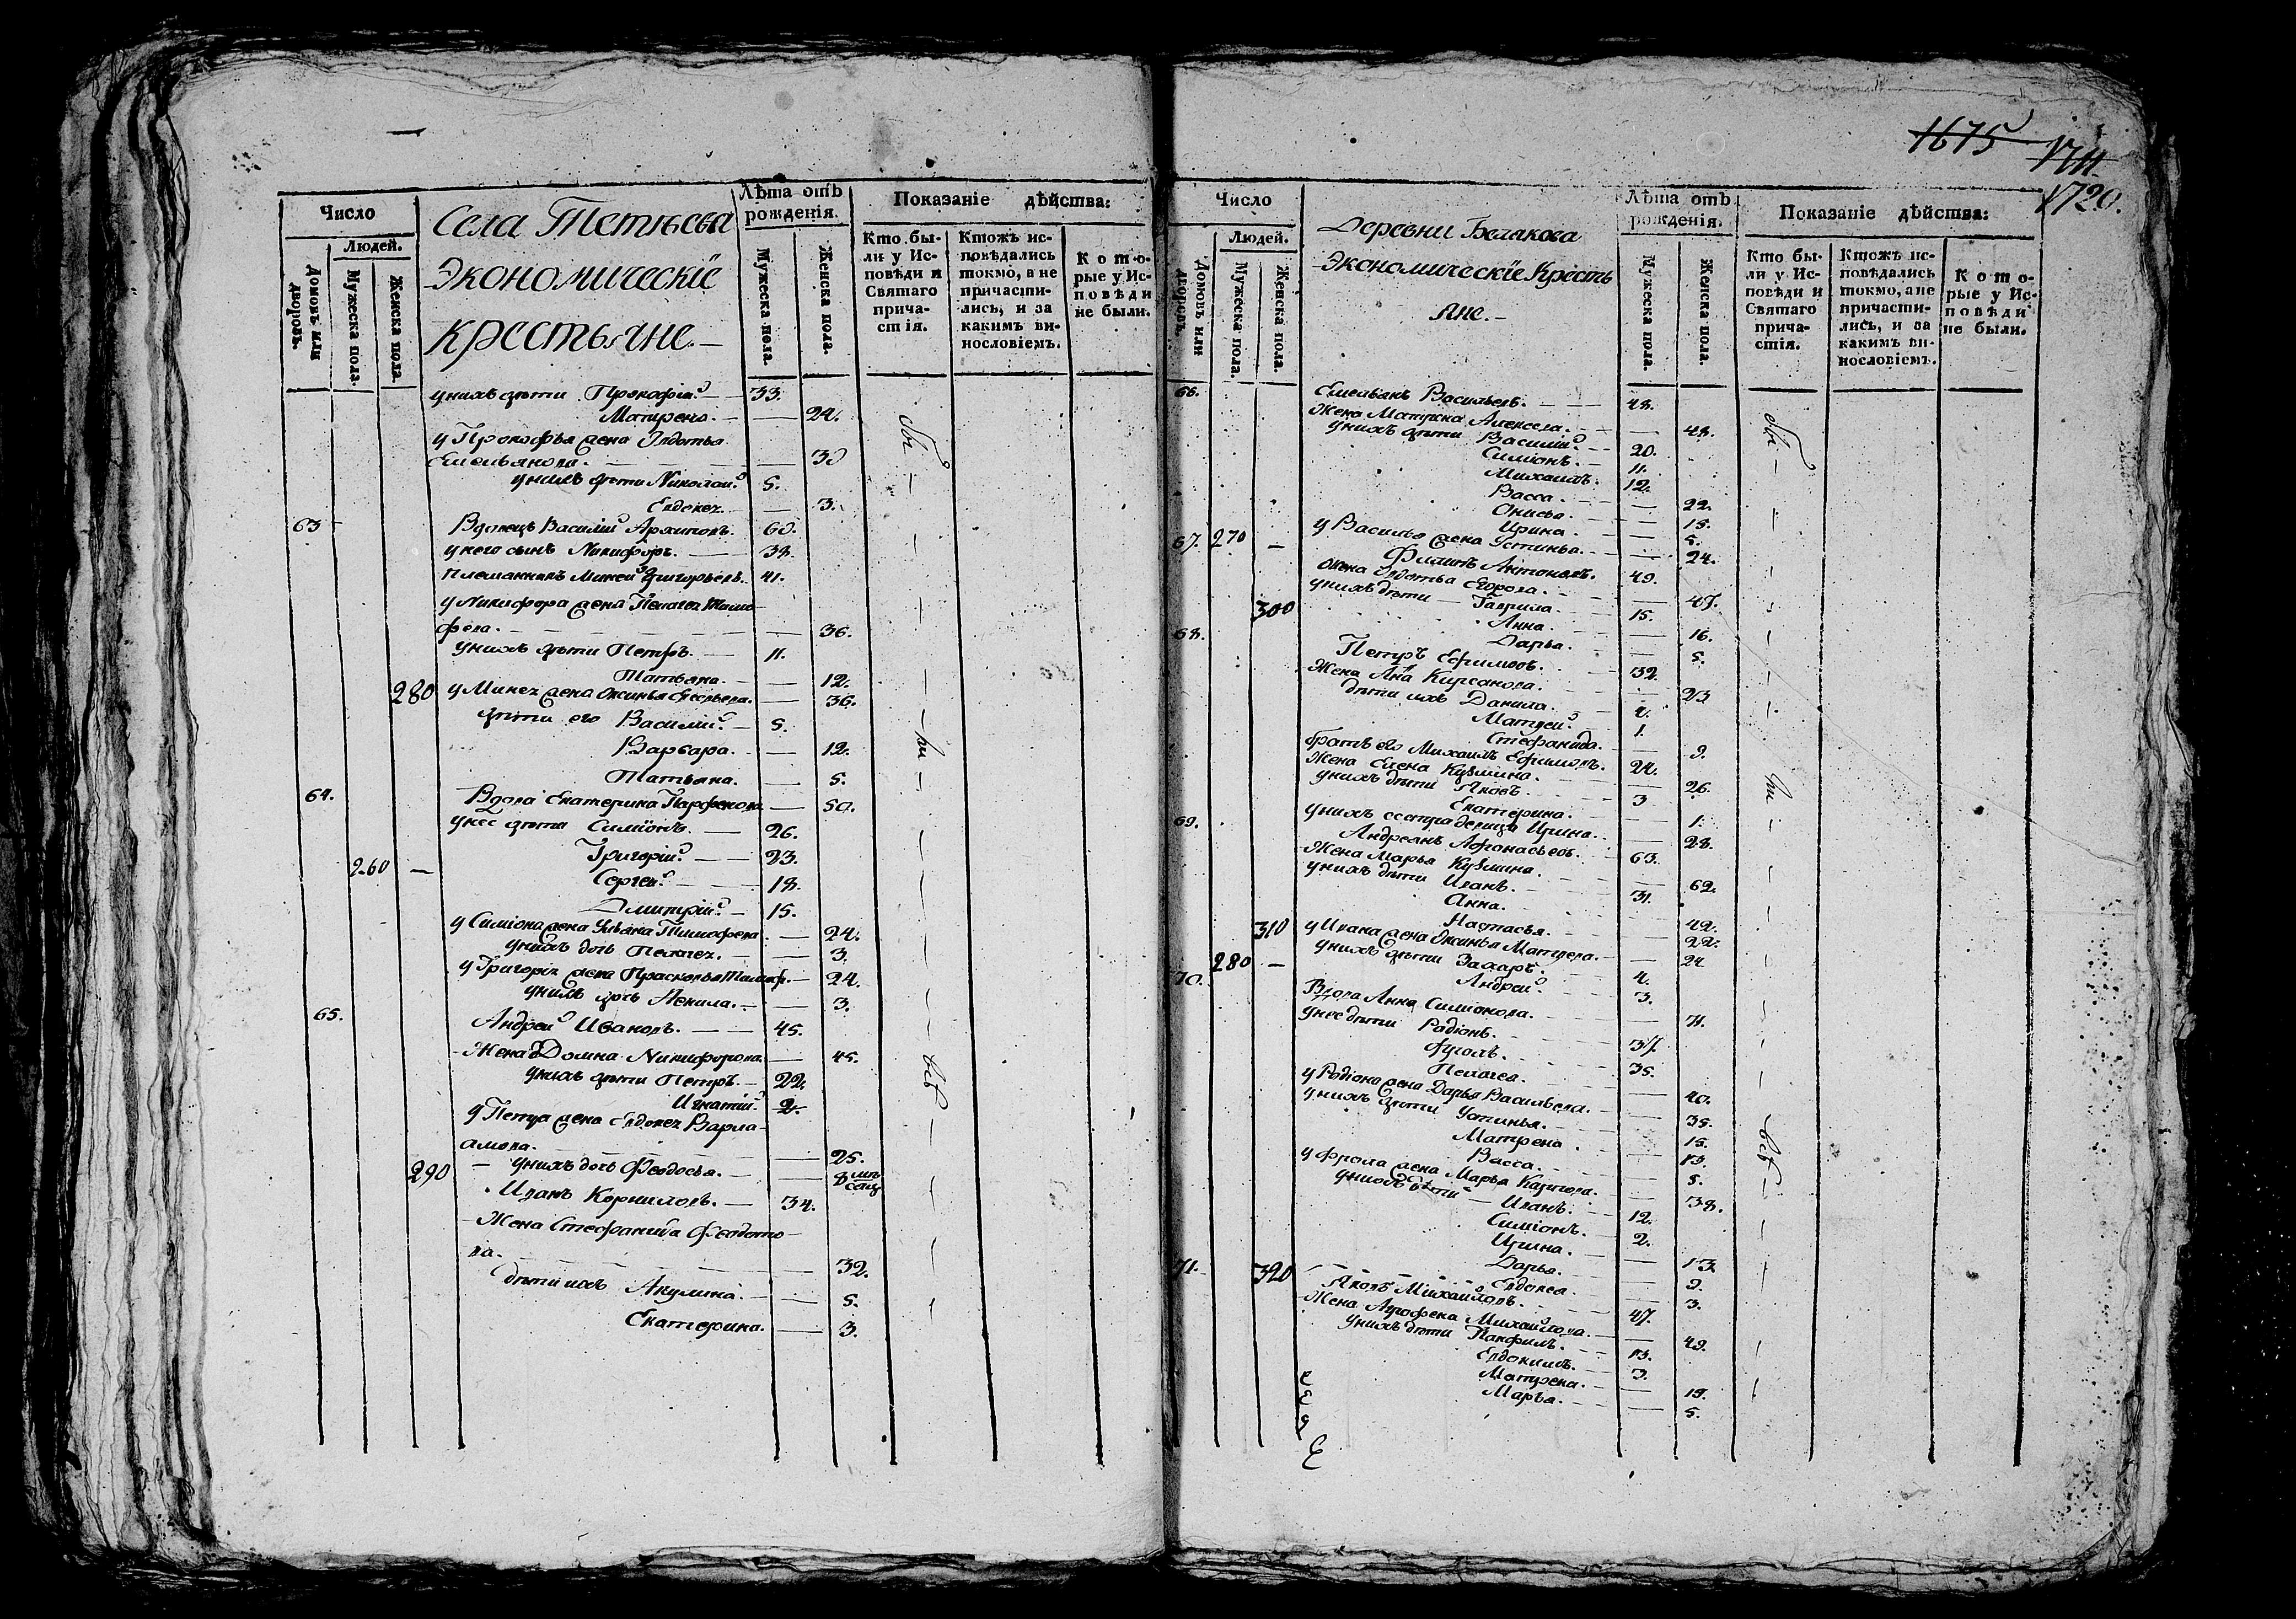 1675
1711
1720.
Число
Села Тетнѣева
Лѣта отъ рожденія.
Показаніе дѣйства:
Людей.
Домовъ или дворовъ.
Мужеска пола.
Женска пола.
Экономическіе
Крестьяне.—
Мужеска пола.
Женска пола.
Кто бы-
ли у Ис-
повѣди и
Святаго
прича-
стія.
Ктожъ ис-
повѣдались
токмо, а не
причасти-
лись, и за
какимъ ви-
нословіемъ.
К о т о-
рые у Ис-
п о в ѣ д и
не были.
у нихъ дѣти Прокофій — 33.
Матрена. — 24.
у Прокофья жена Авдотья
Емельянова. — 30
у нихъ дѣти Николай 5.
Евдокея — 3.
63 Вдовецъ Василій Архиповъ. 60.
у него сынъ Никифоръ. — 38.
племянникъ Миней Григорьевъ. 41.
у Никифора жена Пелагея Тимо-
феева. — 36.
у нихъ дѣти Петръ. — 11.
Татьяна. — 12.
280 у Минея жена Аксинья — 36.
дѣти его Василій — 5.
Варвара. — 12.
Татьяна. — 5.
64. Вдова Екатерина Парфенова — 50.
у нее дѣти Симіонъ. — 26.
Григорій — 23.
260 — Сергей — 18.
Дмитрій — 15.
у Симіона жена Ульяна Тимофеева — 24.
у нихъ дочь Пелагея. — 3.
у Григорія жена Прасковья Тимоф. — 24.
у нихъ дочь Ненила. — 3.
65. Андрей Ивановъ. — 45.
Жена Домна Никифорова. — 45.
у нихъ дѣти Петръ. — 22.
Игнатій 2.
у Петра жена Евдокея Варла-
амова. — 25.
290 — у нихъ дочь Феодосья. — 8 мѣсяц
Иванъ Корниловъ. — 34.
Жена Стефанида Федото-
ва. — 32.
дѣти ихъ Акулина. — 5.
Екатерина. — 3.
обѣ — ни — всѣ
Число
Деревни Белакова
Лѣта отъ рожденія.
Показаніе дѣйства:
Людей.
Домовъ или дворовъ.
Мужеска пола.
Женска пола.
Экономическіе Кресть
яне.—
Мужеска пола.
Женска пола.
Кто бы-
ли у Ис-
повѣди и
Святаго
прича-
стія.
Ктожъ ис-
повѣдались
токмо, а не
причасти-
лись, и за
какимъ ви-
нословіемъ.
К о т о-
рые у Ис-
п о в ѣ д и
не были.
66. Емельянъ Васильевъ. — 48.
Жена Матрена Алексеева. — 48.
у нихъ дѣти Василій — 20.
Симіонъ. — 11.
Михаилъ. 12.
Васса. — 22.
Онисья. — 15.
Ирина. — 5.
у Василья жена Устинья. — 24.
67. 270 — Филипъ Антоновъ. 49.
Жена Авдотья Егорова. — 47.
у нихъ дѣти — Гаврила. — 15.
300 Анна. — 16.
Дарья. — 5.
68. Петръ Ефимовъ. 32.
Жена Анна Кирсанова. — 23
дѣти ихъ Данила. 4.
Матвей 1.
Стефанида. — 9.
братъ его Михаилъ Ефимовъ. 24.
Жена Елена Кузмина. — 26.
у нихъ дѣти Яковъ. — 3
Екатерина. — 1.
у нихъ сестра девица Ирина. — 28.
69. Андреянъ Афонасьевъ. 63.
Жена Марья Кузмина. — 62.
у нихъ дѣти Иванъ. — 31.
Анна. — 42.
Настасья. — 22.
310 у Ивана жена Аксинья Матвеева. — 24
у нихъ дѣти Захаръ. 4.
280 — Андрей 3.
70. Вдова Анна Симіонова. — 71.
у нее дѣти Радіонъ. — 37.
Фролъ. — 35.
Пелагея. — 40.
у Родіона жена Дарья Васильева. — 35.
у нихъ дѣти Устинья. — 15.
Матрена. — 13.
Васса. — 5.
у Фрола жена Марья Карпова. — 38.
у нихъ дѣти — Иванъ. 12.
Симіонъ. 2.
Ирина. — 13
Дарья. — 9.
320 Евдокея. — 3.
71. Яковъ Михайловъ. 47.
Жена Агрофена Михайлова. — 49.
у нихъ дѣти Панфилъ. 13.
Евдокимъ. 3.
Матрена. — 19.
Марья. — 5.
обѣ — ни — всѣ